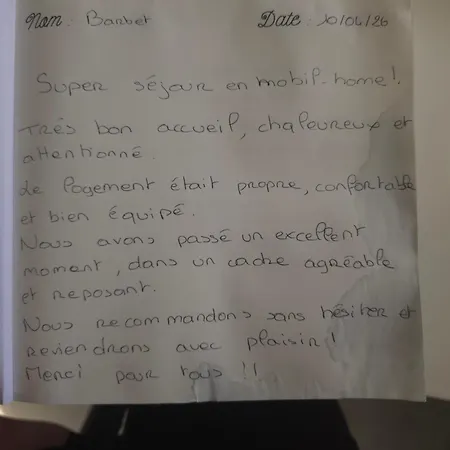 Nom : Barbet Date : 10/04/26
Super séjour en mobil-home !
Très bon accueil, chaleureux et
attentionné.
Le logement était propre, confortable
et bien équipé.
Nous avons passé un excellent
moment, dans un cadre agréable
et reposant.
Nous recommandons sans hésiter et
reviendrons avec plaisir !
Merci pour tous !!